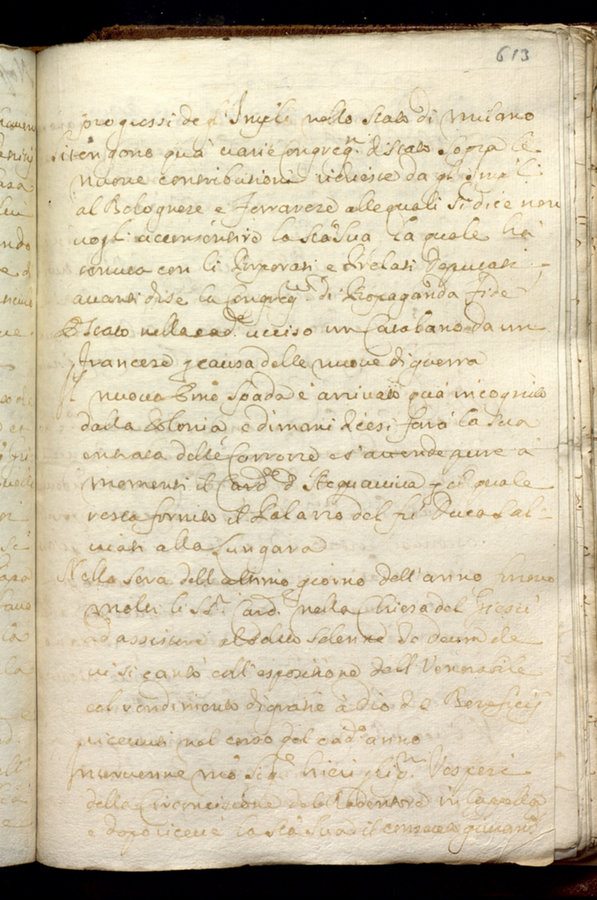 613
progressi de gl' Imp.li nello Stato di Milano
si tengono quà varie Congreg.ni di Stato sopra le
nuove contributioni richieste da gl' Imp.li
al Bolognese e Ferrarese alle quali si dice non
vogli accomsentire la Stà Sua la quale hà
con li Porporati e Prelati Deputati
avanti la Congreg.ne di Propaganda Fide
È stato nella ucciso un da un
Francese p causa delle nuove di guerra
Il nuovo Emo Spada è arrivato quà incognito
dalla Polonia, e dimani dicesi farà la sua
entrata delle Carrozze e s'attende pure à
momenti il Card.le d'Acquaviva p il quale
resta fornito il Palazzo del fù Duca Sal-
viati alla Lungara
Nella sera dell' ultimo giorno dell' anno
molti li SS.ri Card.li nella Chiesa del Giesù
ad assistere al solenne Te Deum che
vi si cantò coll' esposizione dell' Venerabile
col rendimento di gratie à Dio de Beneficij
ricevuti nel corso del cad.o anno
Intervenne N.ro Sig.re hieri Vesperi
della Circoncisione del Redentore in Cappella
e doppo ricevè la Stà Sua il